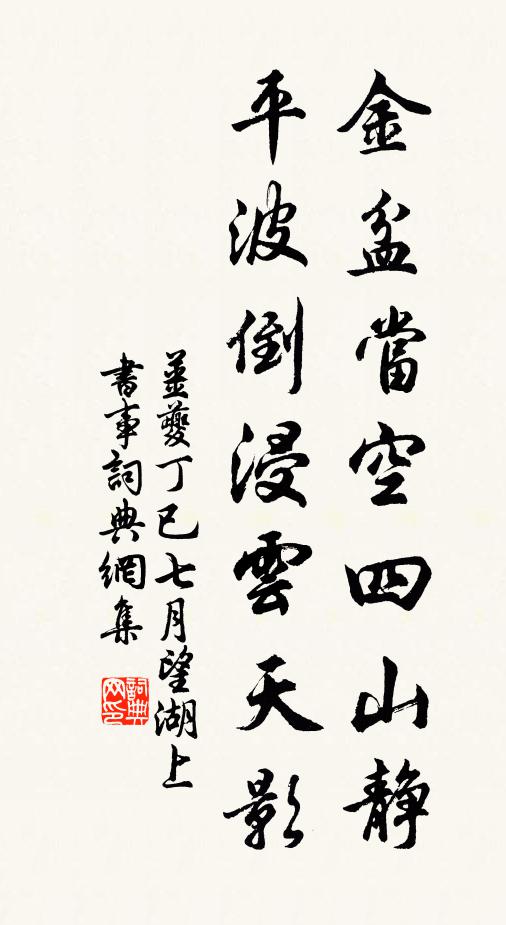 金盆當空四山静
平波倒浸雲天影
姜夔丁巳七月望湖上
書事詞典網集
詞典网印